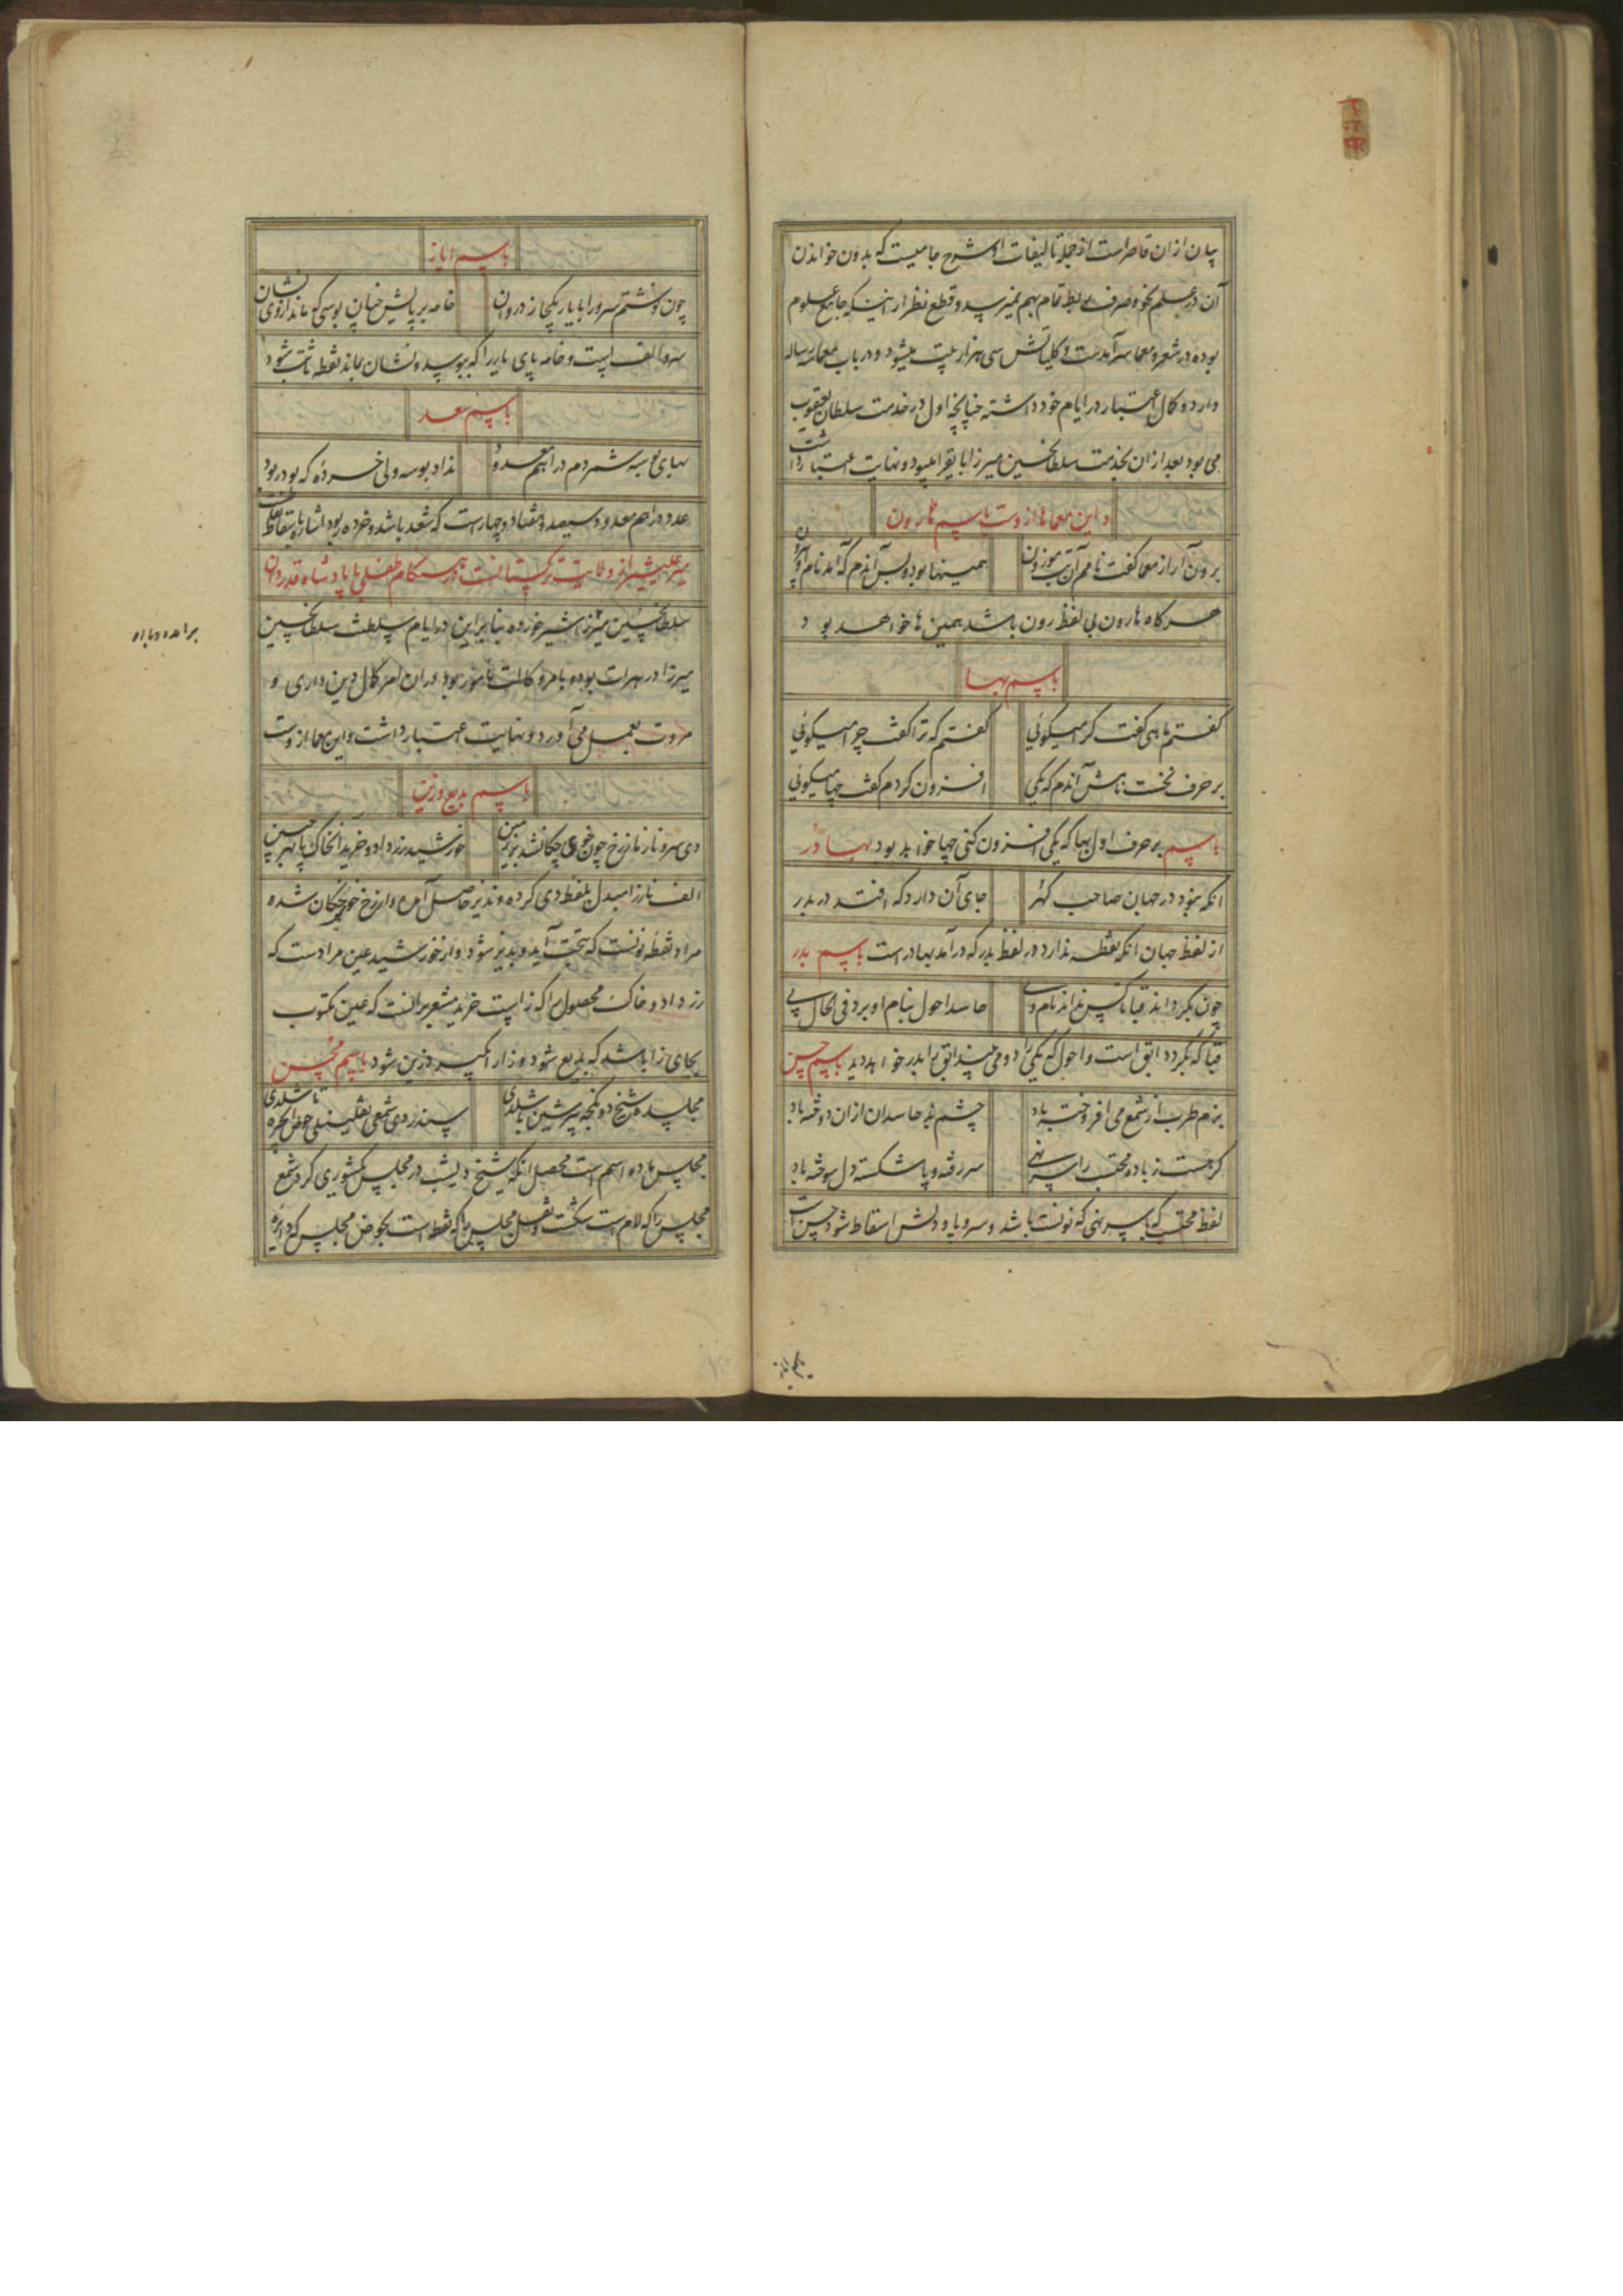 بیان ازان قاصراست از جمله تالیفات او شرح جامیست که بدون خواندن
آن در علم نحو و صرف ربط تمام بهم نمیرسد و قطع نظر از اینکه جامع علوم
بوده در شعر و معما سرآمدست و کلیاتش سی هزار بیت میشود و در باب معما سه رساله
دارد و کمال اعتبار در ایام خود داشته چنانچه اول در خدمت سلطان یعقوب
می بود بعد ازان بخدمت سلطانحسین میرزا بایقرا میبود و نهایت اعتبار داشت
و این معماها ازوست باسم هارون
برون آر از معما گفت نامم آن بت موزون
همینها بود و بس آندم که آمد نام او بیرون
هرگاه هارون بی لفظ رون باشد همین ها خواهد بود
باسم بها
گفتم ماهی گفت کرا میگوئی
گفتم که ترا گفت چرا میگوئی
بر حرف نخست نامش آندم که یکی
افزون کردم گفت چها میگوئی
باسم بر حرف اول بها که یکی افزون کنی چها خواهد بود بهادر
انکه نبود در جهان صاحب گهر
جای آن دارد که افتد در بدر
از لفظ جهان انکه نقطه ندارد در لفظ بدر که درآمد بهادر است باسم بدر
چون بگرداند قبا تا کس نداند نام وی
حاسد احول بنام او برد فی الحال پی
قبا که بگردد ابق است و احول که یکی را دو می بیند ابق را بدر خواهد دید باسم حسن
بزم طرب از شمع می افروخته باد
چشم بد حاسدان ازان دوخته باد
گر هست ز باده محتسب را سرنهی
سر رفته و پا شکسته دل سوخته باد
لفظ محتسب که با سر نهی که نونست باشد و سر و پا و دلش اسقاط شود حسن است
باسم ایاز
چون نوشتم سرو را با یار یکجا ز دروان
خامه بر پایش چنان بوسی که ماند از وی نشان
سرو الف است و خامه پای یار را که ببوسد و نشان بماند نقطه ثبت شود
باسم سعد
بهای بوسه شمردم دراهم معدود
نداد بوسه ولی خرده که بود ربود
عدد دراهم معدود سیصد و هفتاد و چهارست که شعد باشد و خرده ربود اشاره باسقاط نقطه
میر علیشیر از ولایت ترکستانست در هنگام طفلی با پادشاه قدردان
سلطانحسین میرزا شیر خورده بنابراین در ایام سلطنت سلطانحسین
میرزا در هرات بوده بامر وکالت مامور بود دران امر کمال دین داری و
مروت بعمل می آورد و نهایت اعتبار داشت و این معما ازوست
باسم بدیع و زین
دی سرو ناز ما ز رخ چون خوی چکانشد بر زمین
خورشید زر داد و خرید آنخاک پا بهر جبین
الف ناز را مبدل بلفظ دی کرده و ندیز حاصل آمده و از رخ خوی چکان شده
مراد نقطه نونست که بتحت آید و بدیز شود و از خورشید عین مرادست که
زر داد و خاک محصول را که زاست خرید مشعر برانست که عین مکتوب
بجای زا باشد که بدیع شود و زا را گیرد زین شود باسم محسن
مجلس ماده اسم است محصل انکه شیخ دیشب در مجلس کشوری کرد شمع
مجلس را که لام است شکست و نقل مجلس را که نقطه است بحوض مجلس که دایره
برامده دوباره